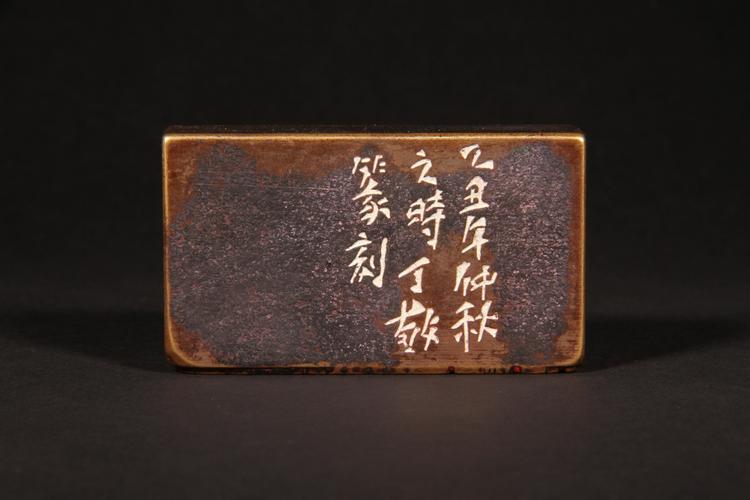 乙丑年仲秋
之時丁敬
篆刻